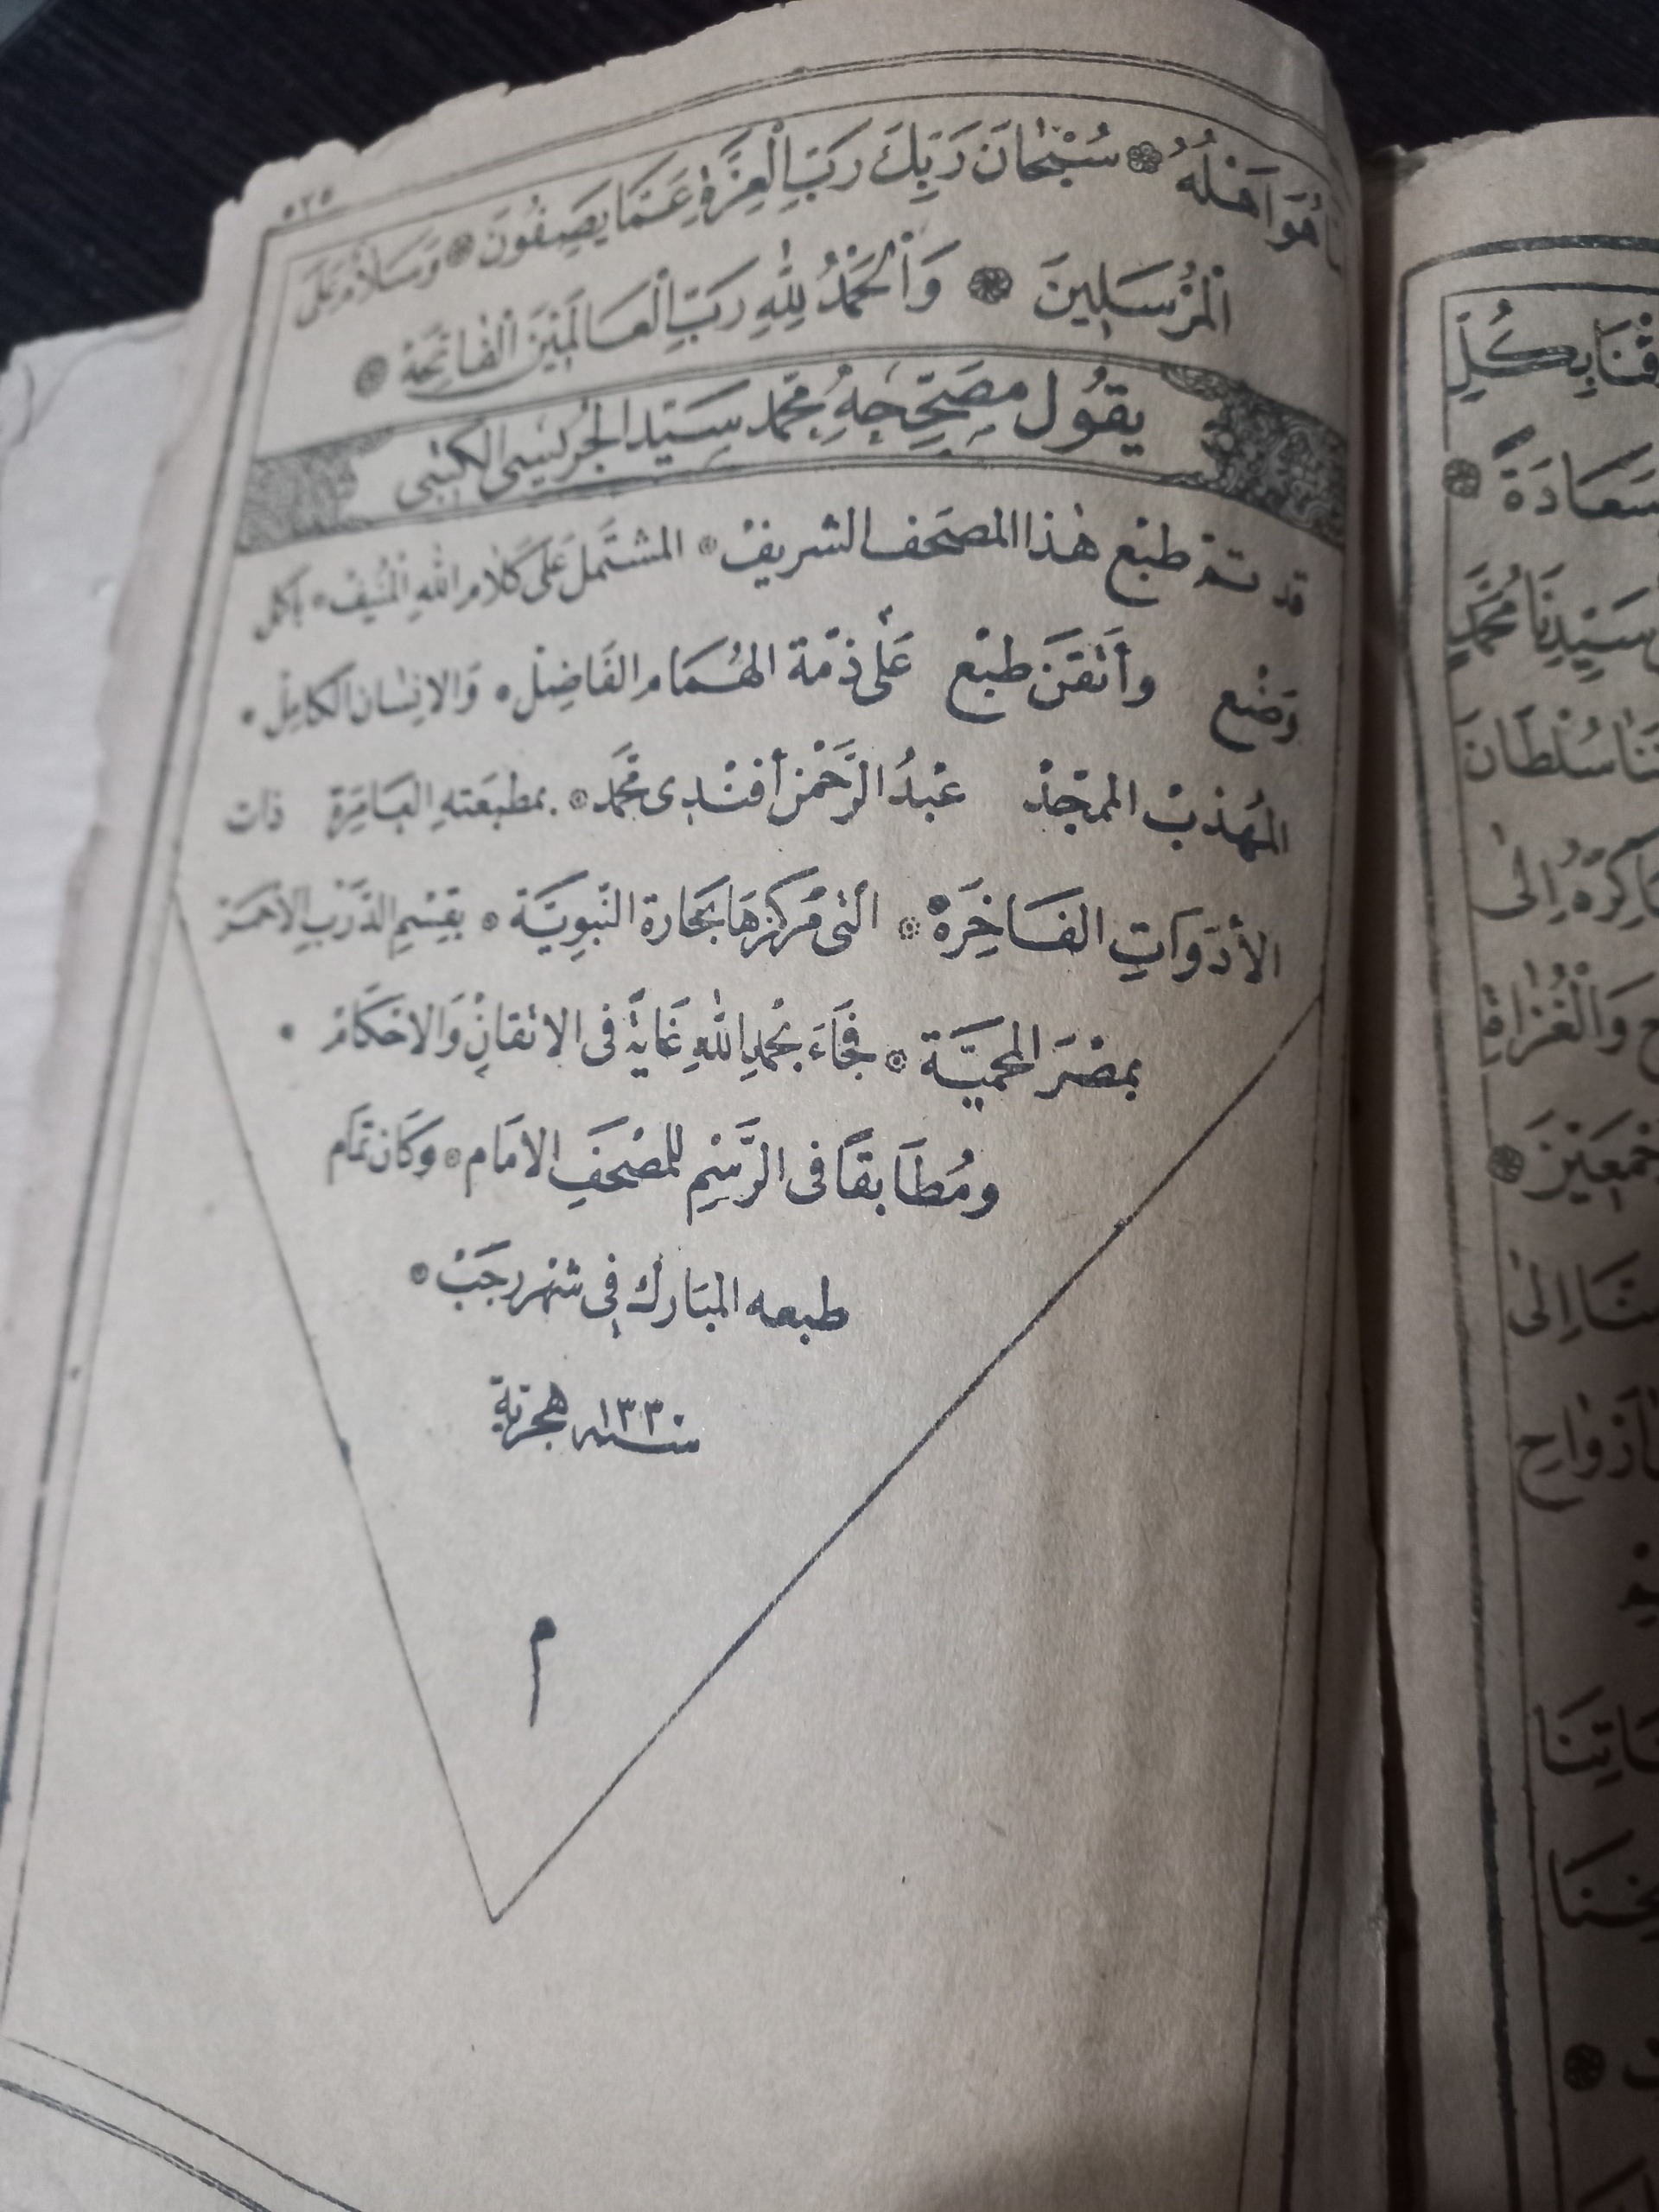 ٥٢٥
هُوَ اَهْلُهُ ۞ سُبْحَانَ رَبِّكَ رَبِّ الْعِزَّةِ عَمَّا يَصِفُونَ ۞ وَسَلَامٌ عَلَى
الْمُرْسَلِينَ ۞ وَالْحَمْدُ لِلّٰهِ رَبِّ الْعَالَمِينَ الْفَاتِحَةْ ۞
يقُول مصَحِّحِهُ محمد سَيّد الجَرَيسِى الكُتبى
قد تمّ طبْع هٰذا المصحَف الشريفْ ۞ المشتَمل عَلَى كَلَامِ اللّٰهِ الْمُنيفْ ۞ بأكمل
وَضْع وأَتقَن طبْع عَلٰى ذمّة الهُمَام الفَاضِلْ ۞ وَالانسان الكامِلْ ۞
المهَذبْ الممجّدْ عَبْدُ الرَّحْمٰن أفنْدِى محمَّد ۞ بمطبَعَتهِ العَامِرَة ذات
الأدَوَاتِ الفَاخِرَةْ ۞ الّتى مَركزهَا بحَارة النّبوِيَّة ۞ بقِسْمِ الدَّرْبِ الاحْمَرْ
بمصْرَ المحميَّة ۞ فجَاءَ بحَمْدِ اللّٰهِ غَايَةً فى الاتقانْ وَالاحْكَامْ ۞
ومُطَابقًا فى الرَّسْمِ للمصْحَفِ الامَام ۞ وَكَان تمَام
طبعه المبَارك فِى شهْر رجَبْ ۞
سنة ١٣٣٠ هجرية
م
فْنَا بِكُلِّ
سَعَادَةً ۞
سَيِّدِنَا مُحَمَّدٍ
سُلْطَانَ
اِلٰى
وَالْغُزَاةِ
۞
اِلٰى